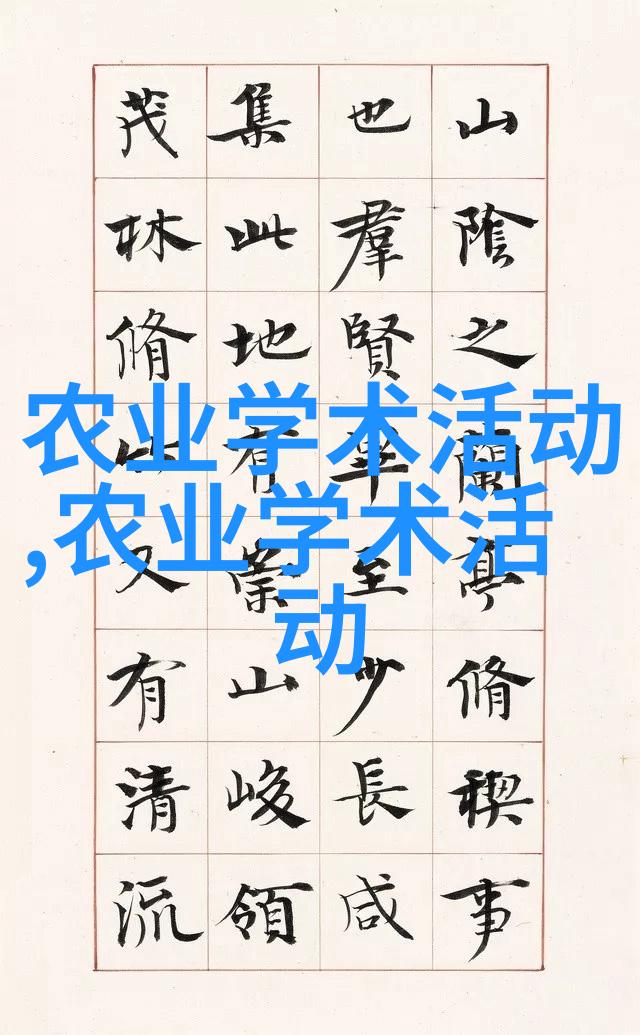 山陰之蘭亭脩稧事
也羣賢畢至少長咸
集此地有崇山峻領
茂林脩竹又有清流
农业学术活动
,农业学术活
动